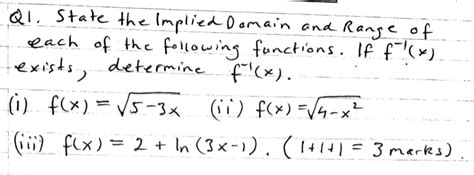 Q1. State the Implied Domain and Range of
each of the following functions. If f⁻¹(x)
exists, determine f⁻¹(x).
(i) f(x) = √5-3x (ii) f(x) = √4-x²
(iii) f(x) = 2 + ln (3x-1). (1+1+1 = 3 marks)